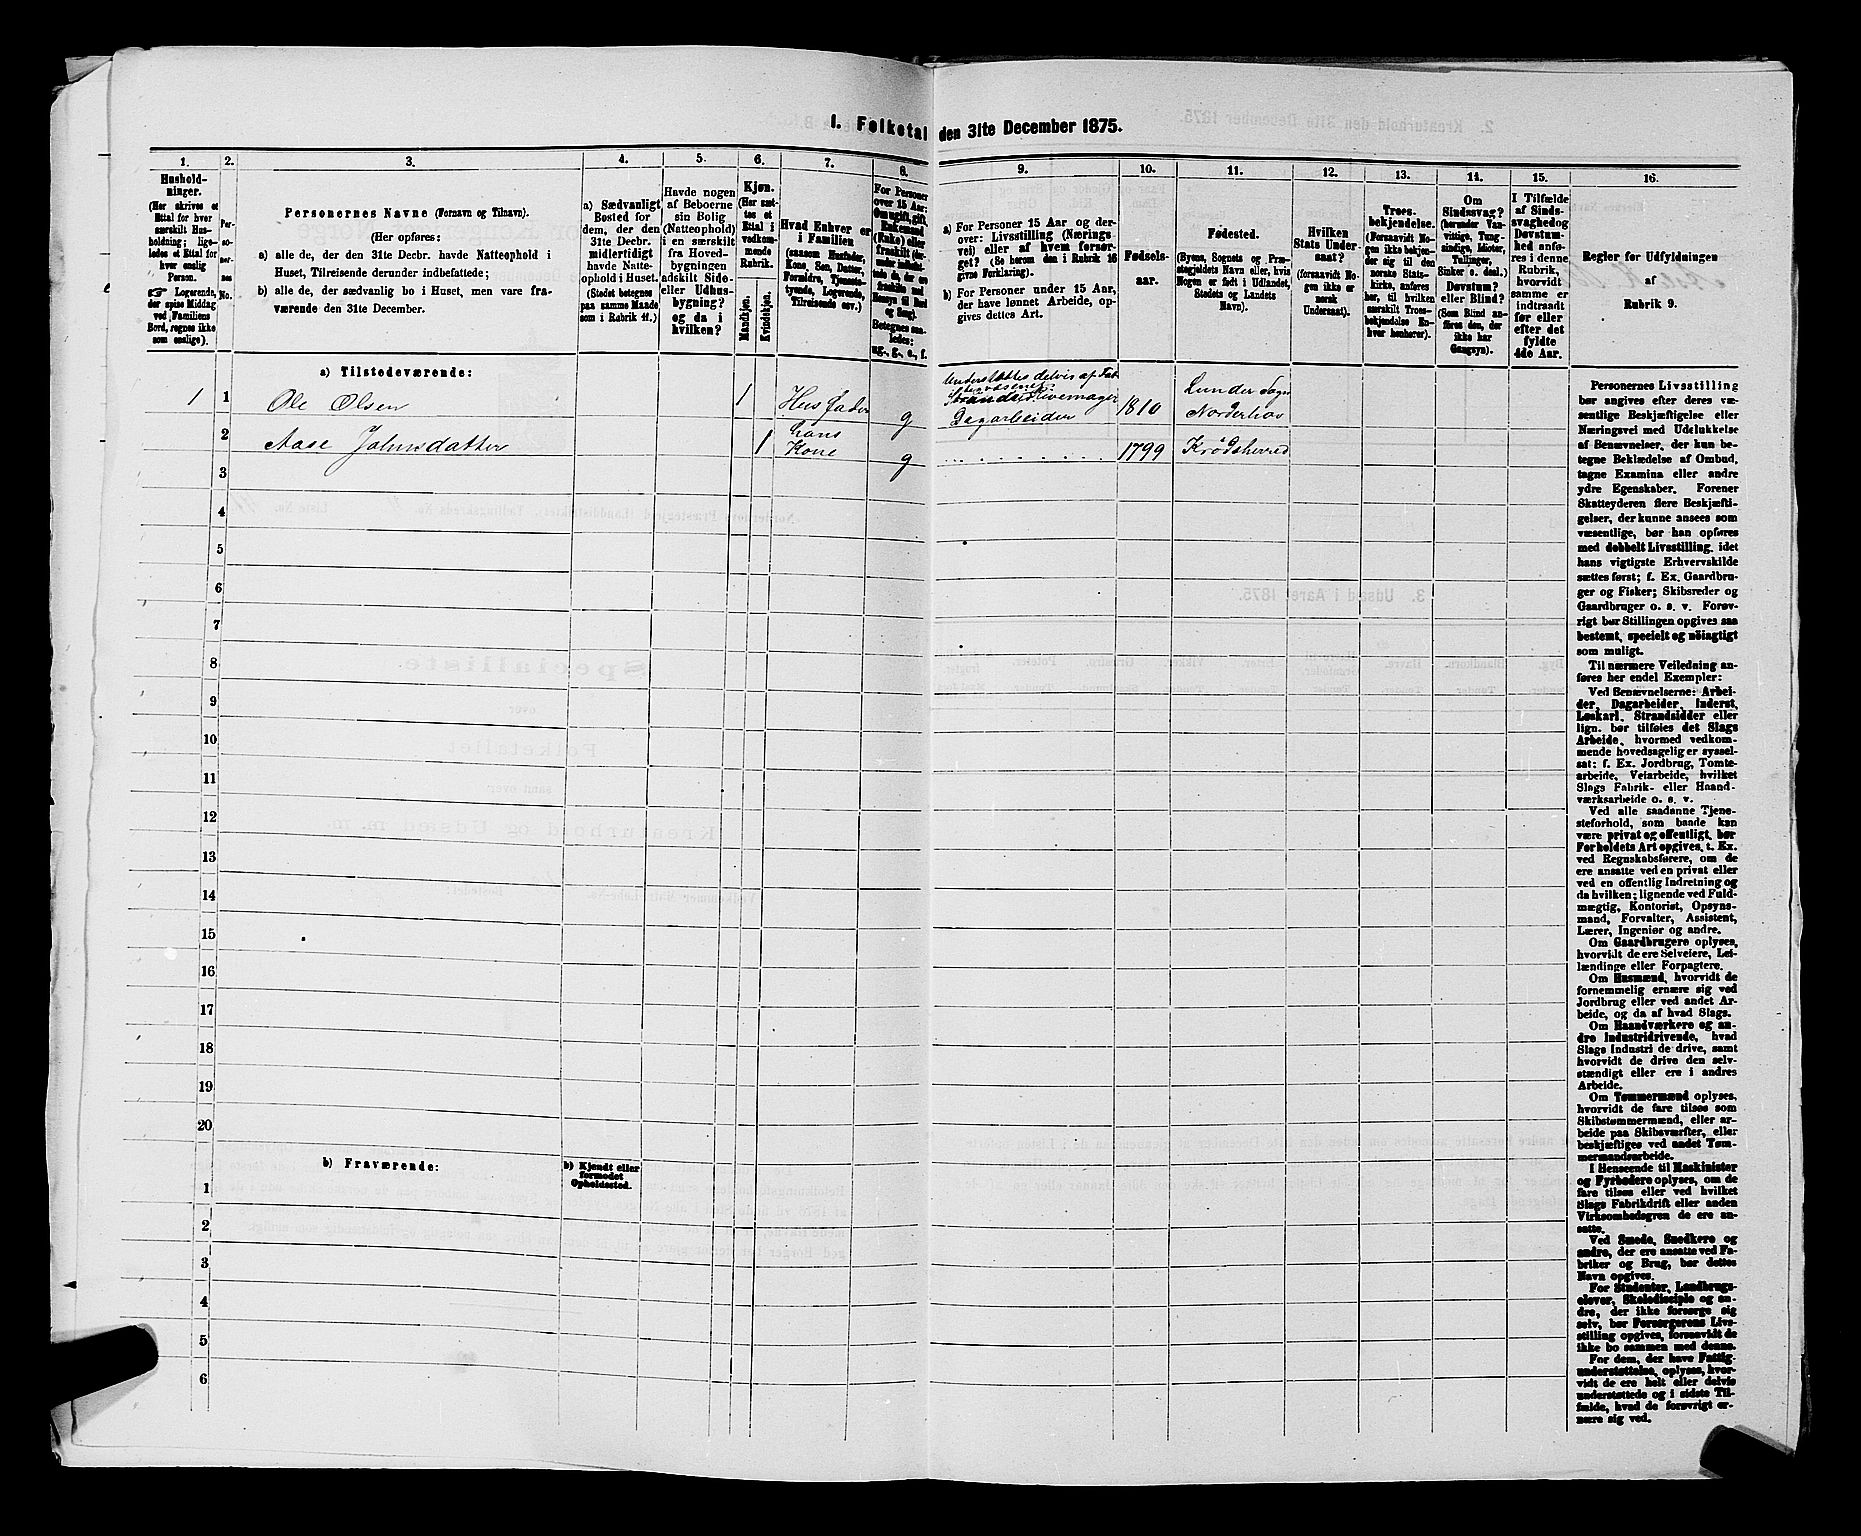 I. Folketal den 31te December 1875.
1. 2. 3. 4. 5. 6. 7. 8. 9. 10. 11. 12. 13. 14. 15. 16.
Hushold-
ninger.
(Her skrives et
Ettal for hver
særskilt Hus-
holdning; lige-
ledes et Ettal for
hver enslig
Person.
☞ Logerende,
der spise Middag
ved Familiens
Bord, regnes ikke
som enslige).
Per-
so-
ner-
nes
No.
Personernes Navne (Fornavn og Tilnavn).
(Her opføres:
a) alle de, der den 31te Decbr. havde Natteophold i
Huset, Tilreisende derunder indbefattede;
b) alle de, der sædvanlig bo i Huset, men vare fra-
værende den 31te December.
a) Sædvanligt
Bosted for
dem, der den
31te Decbr.
midlertidigt
havde Natte-
ophold i Huset.
(Stedet betegnes
paa samme Maade
som i Rubrik 11.)
Havde nogen
af Beboerne
sin Bolig
(Natteophold)
i en særskilt
fra Hoved-
bygningen
adskilt Side-
eller Udhus-
bygning?
og da i
hvilken?
Kjøn.
(Her sæt-
tes et
Ettal i
vedkom-
mende
Rubrik.
Mandkjøn.
Kvindekjøn.
Hvad Enhver er
i Familien
(saasom Husfader,
Kone, Søn, Datter,
Forældre, Tjeneste-
tyende, Logerende,
Tilreisende osv.)
For Personer
over 15 Aar:
Om ugift, gift,
Enkemand
(Enke) eller
fraskilt (her-
under indbefat-
tede de, der ere
fraskilte med
Hensyn til Bord
og Seng).
Betegnes saa-
ledes:
ug., g., e., f.
a) For Personer 15 Aar og der-
over: Livsstilling (Nærings-
vei) eller af hvem forsør-
get? (Se herom den i Rubrik 16
givne Forklaring).
b) For Personer under 15 Aar,
der have lønnet Arbeide, op-
gives dettes Art.
Fødsels-
aar.
Fødested.
(Byens, Sognets og Præ-
stegjeldets Navn eller, hvis
Nogen er født i Udlandet,
Stedets og Landets
Navn).
Hvilken
Stats Under-
saat?
(forsaavidt No-
gen ikke er
norsk
Undersaat).
Troes-
bekjendelse.
(Forsaavidt No-
gen ikke bekjen-
der sig til den
norske Stats-
kirke, anføres
her, til hvilken
særskilt Troes-
bekjendelse En-
hver henhører).
Om
Sindssvag?
(herunder Van-
vittige, Tung-
sindige, Idioter,
Tullinger,
Sinker o. desl.)
Døvstum?
eller Blind?
(Som Blind an-
føres den, der
ikke har
Gangsyn).
I Tilfælde
af Sinds-
svaghed og
Døvstum-
hed anfø-
res i denne
Rubrik,
hvorvidt
samme er
indtraadt
før eller
efter det
fyldte
4de Aar.
Regler for Udfyldningen
af
Rubrik 9.
a) Tilstedeværende:
Understøttes delvis af Fat-
1 1 Ole Olsen 1 Husfader g Dagarbeider 1810 Lunder Sogn
Norderhov
2 Aase Johnsdatter 1 hans
Kone g 1799 Krødsherred
3
4
5
6
7
8
9
10
11
12
13
14
15
16
17
18
19
20
b) Fraværende:
b) Kjendt eller
formodet
Opholdssted.
1
2
3
4
5
6
Personernes Livsstilling
bør angives efter deres væ-
sentlige Beskjæftigelse eller
Næringsvei med Udelukkelse
af Benævnelser, der kun be-
tegne Beklædelse af Ombud,
tagne Examina eller andre
ydre Egenskaber. Forener
Skatteyderen flere Beskjæfti-
gelser, der kunne ansees som
væsentlige, bør han opføres
med dobbelt Livsstilling, idet
hans vigtigste Erhvervskilde
sættes først; f. Ex. Gaardbru-
ger og Fisker; Skibsreder og
Gaardbruger o. s. v. Forøv-
rigt bør Stillingen opgives saa
bestemt, specielt og nöiagtigt
som muligt.
Til nærmere Veiledning an-
føres her endel Exempler:
Ved Benævnelserne: Arbei-
der, Dagarbeider, Inderst,
Løskarl, Strandsidder eller
lign. bør tilføies det Slags
Arbeide, hvormed vedkom-
mende hovedsagelig er syssel-
sat; f. Ex. Jordbrug, Tomte-
arbeide, Veiarbeide, hvilket
Slags Fabrik- eller Haand-
værksarbeide o. s. v.
Ved alle saadanne Tjene-
steforhold, som baade kan
være privat og offentligt, bør
Forholdets Art opgives, t. Ex.
ved Regnskabsførere, om de
ere ansatte ved en privat eller
ved en offentlig Indretning og
da hvilken; lignende ved Fuld-
mægtig, Kontorist, Opsyns-
mand, Forvalter, Assistent,
Lærer, Ingeniør og andre.
Om Gaardbrugere oplyses,
hvorvidt de ere Selveiere, Lei-
lændinge eller Forpagtere.
Om Husmænd, hvorvidt de
fornemmelig ernære sig ved
Jordbrug eller ved andet Ar-
beide, og da af hvad Slags.
Om Haandværkere og an-
dre Industridrivende, hvad
Slags Industri de drive, samt
hvorvidt de drive den selv-
stændigt eller ere i andres
Arbeide.
Om Tømmermænd oplyses,
hvorvidt de fare tilsøs som
Skibstømmermænd, eller ar-
beide paa Skibsværfter, eller
beskjæftiges ved andet Tøm-
mermandsarbeide.
I Henseende til Maskinister
og Fyrbødere oplyses, om de
fare tilsøs eller ved hvilket
Slags Fabrikdrift eller anden
Virksomhedsgren de ere an-
satte.
Ved Smede, Snedkere og
andre, der ere ansatte ved Fa-
briker og Brug, bør dettes
Navn opgives.
For Studenter, Landbrugs-
elever, Skoledisciple og an-
dre, der ikke forsørge sig
selv, bør Forsørgerens Livs-
stilling opgives, forsaavidt de
ikke bo sammen med denne.
For dem, der have Fattig-
understøttelse, oplyses, hvor-
vidt de ere helt eller delvis
understøttede og i sidste Til-
fælde, hvad de forøvrigt er-
nære sig ved.